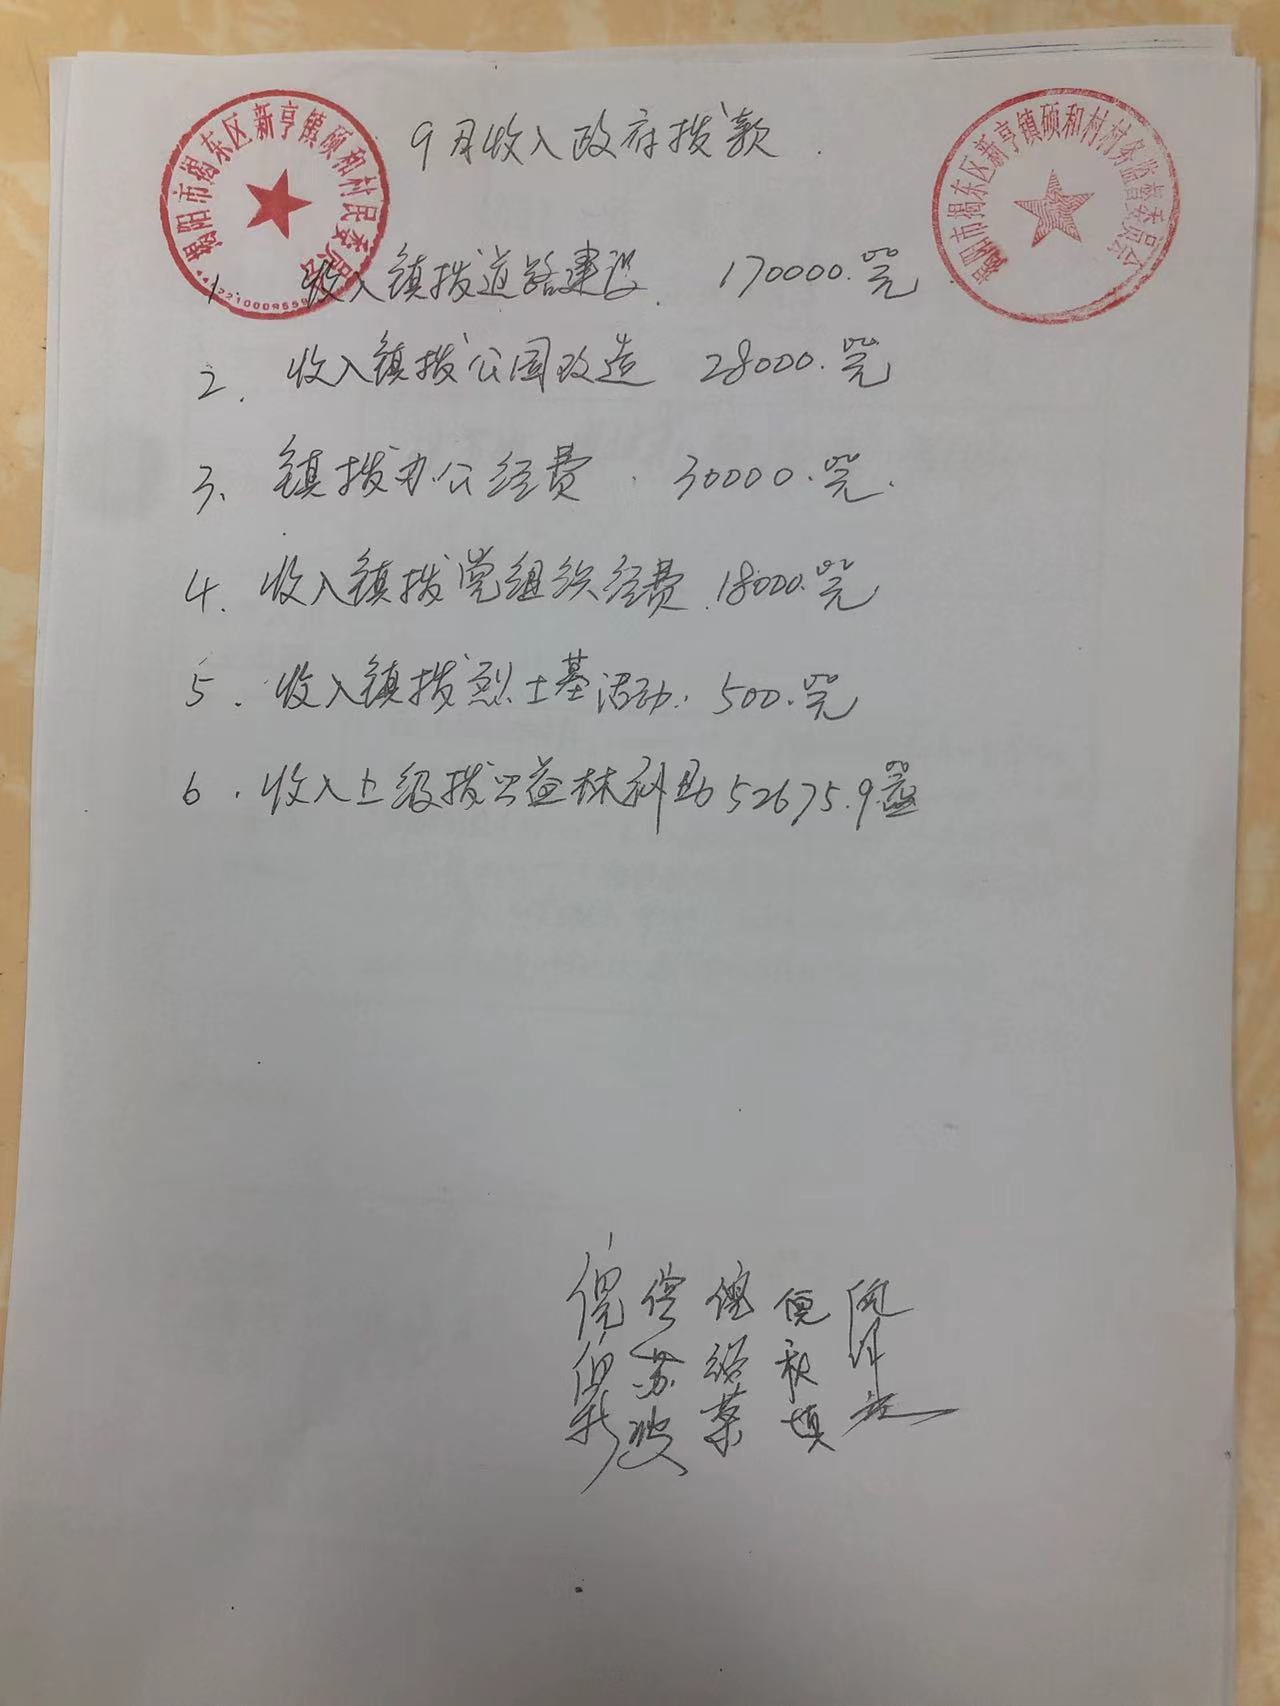 揭阳市揭东区新亨镇硕和村民委员会
揭阳市揭东区新亨镇硕和村村务监督委员会
9月收入政府拨款.
1. 收入镇拨道路建设. 170000.00元
2. 收入镇拨公园改造 28000.00元
3、镇拨办公经费. 30000.00元.
4. 收入镇拨党组织经费.18000.00元
5. 收入镇拨烈士墓活动. 500.00元
6. 收入上级拨公益林补助 52675.90元